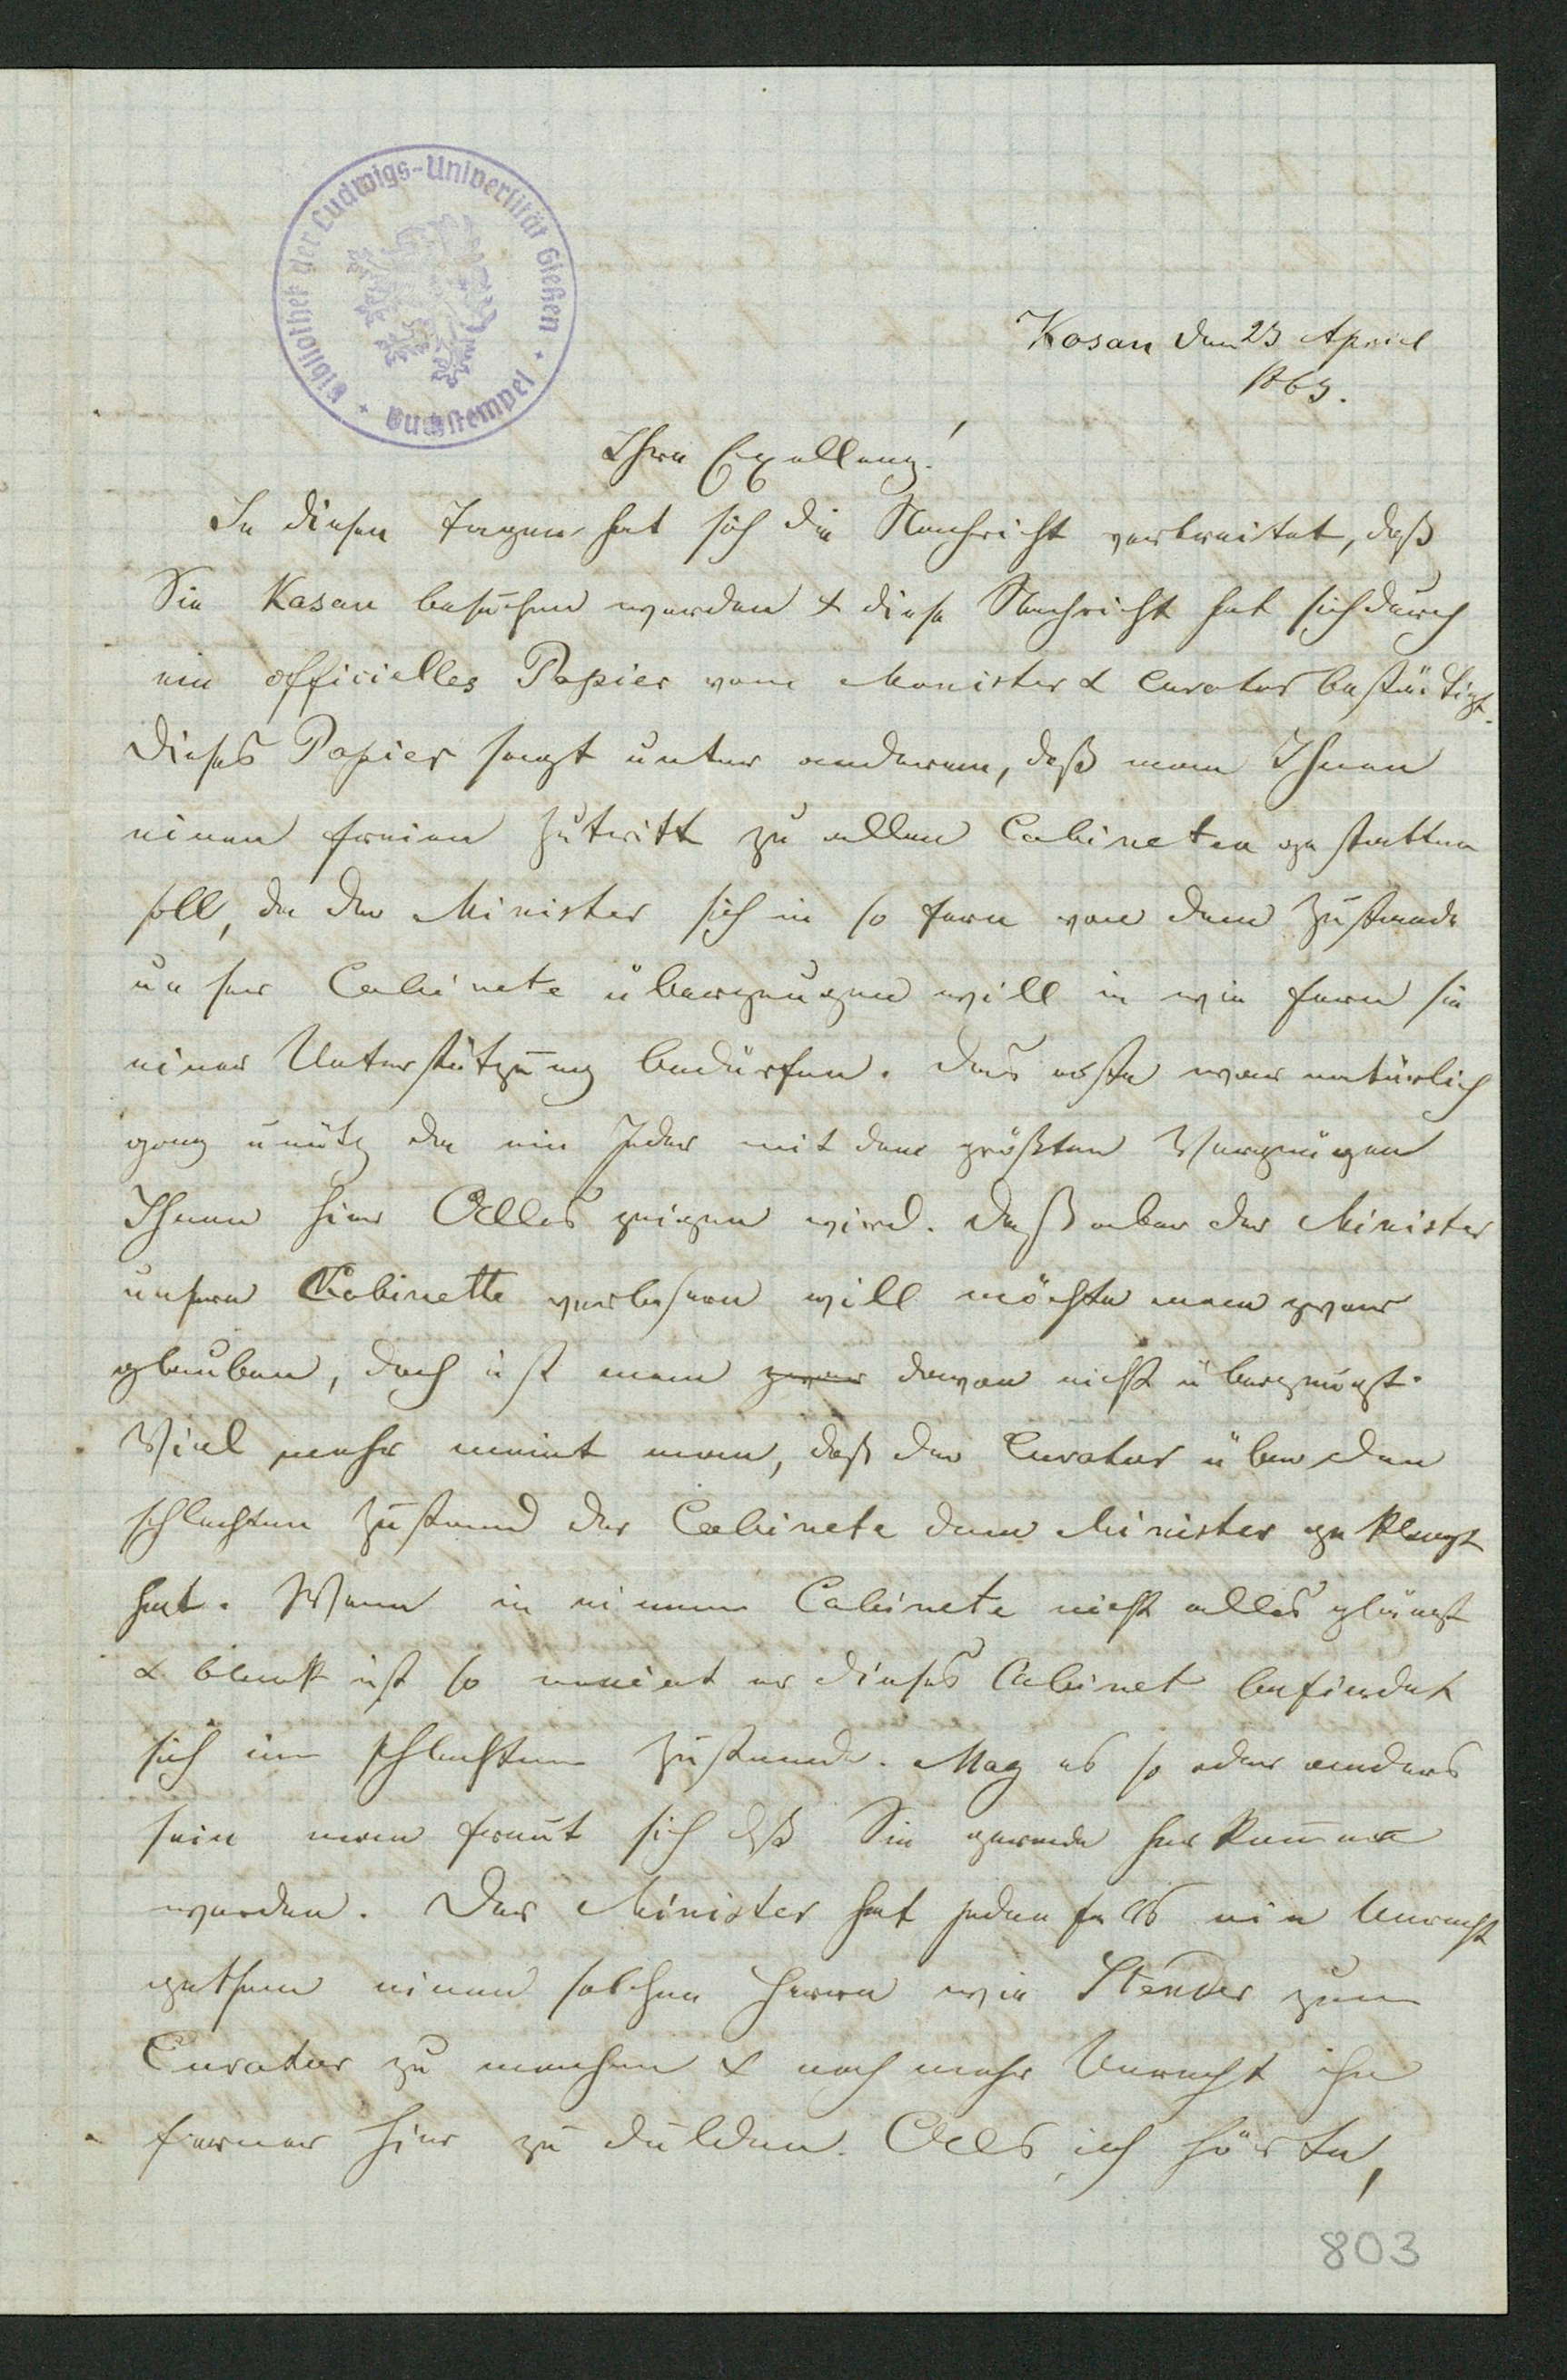 Bibliothek der Ludwigs-Universität Gießen
Buchstempel
Kasan den 23 April
1863.
Ihre Exellenz!
In diesen Tagen hat sich die Nachricht verbreitet, daß
Sie Kasan besuchen werden & diese Nachricht hat sich durch
ein officielles Papier vom Minister & Curator bestätigt.
Dieses Papier sagt unter anderem, daß man Ihnen
einen freien Zutritt zu allen Cabineten gestatten
soll, da der Minister sich in so fern von dem Zustande
unser Cabinete überzeugen will in wie fern sie
einer Unterstützung bedürfen. Das erste war natürlich
ganz unütz da ein Jeder mit dem größten Vergnügen
Ihnen hier Alles zeigen wird. Daß aber der Minister
unsere Cabinette verbessern will möchte man zwar
glauben, doch ist man zwar davon nicht überzeugt.
Viel mehr meint man, daß der Curator über den
schlechten Zustand der Cabinete dem Minister geklagt
hat. Wenn in einem Cabinete nicht alles glänzt
& blank ist so meint er dieses Cabinet befindet
sich im schlechten Zustande. Mag es so oder anders
sein man freut sich daß Sie gerade herkommen
werden. Der Minister hat jedenfalls ein Unrecht
gethan einen solchen Herrn wie Stender zum
Curator zu machen & noch mehr Unrecht ihn
ferner hier zu dulden. Als ich hörte,
803